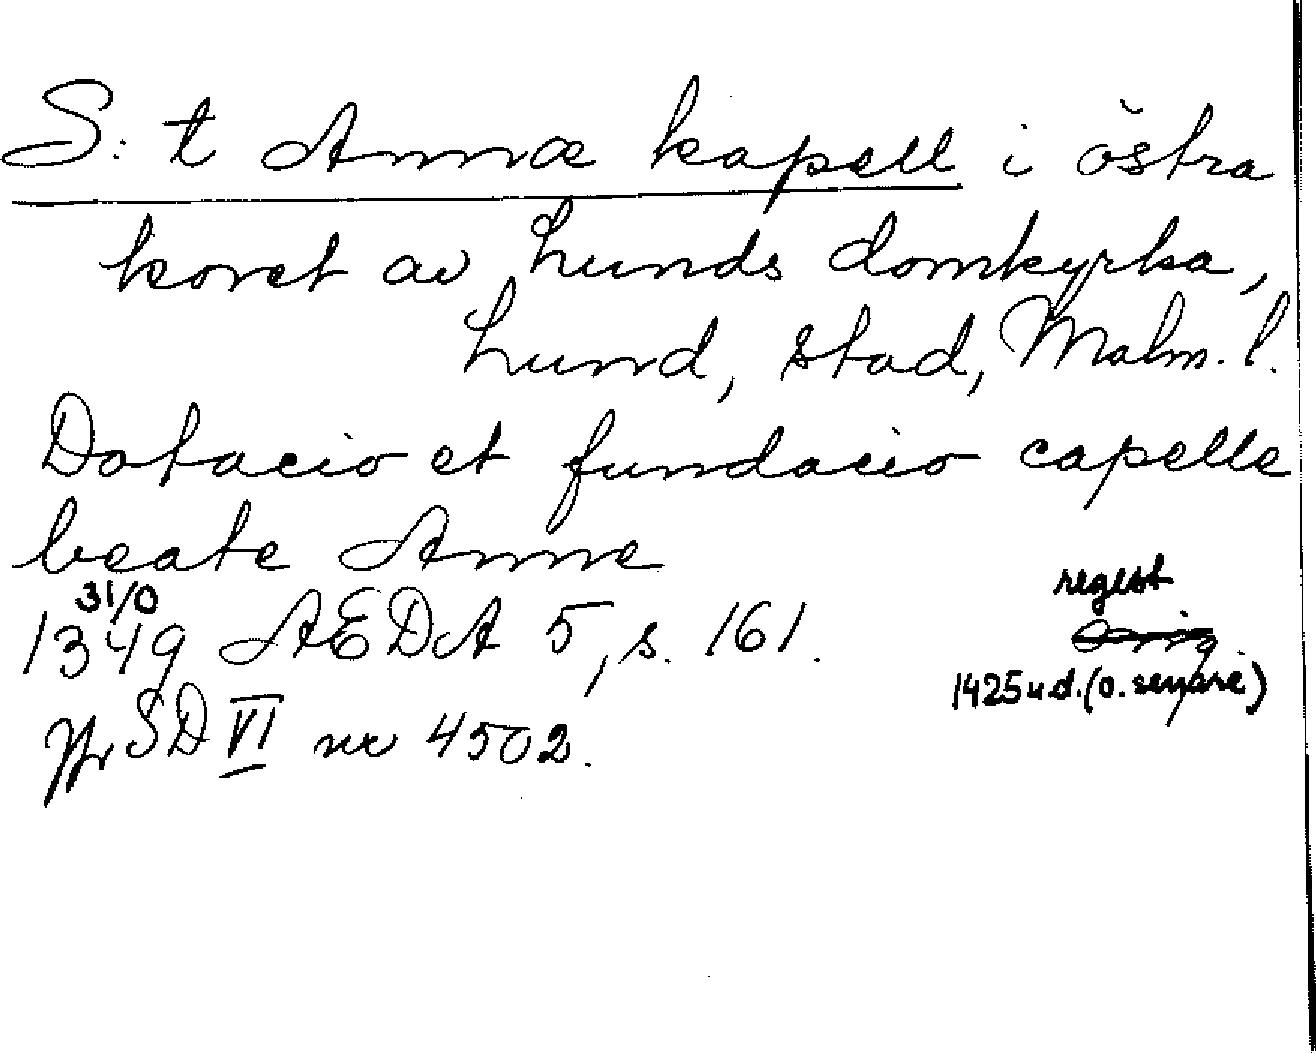 S:t Annæ kapell i östra
koret av Lunds domkyrka,
Lund, stad, Malm. l.
Dotacio et fundacio capelle
beate Anne
31/0
1349 AEDA 5, s. 161.
regest
Orig.
1425 u.d. (o. senare)
Jfr SD VI nr 4502.